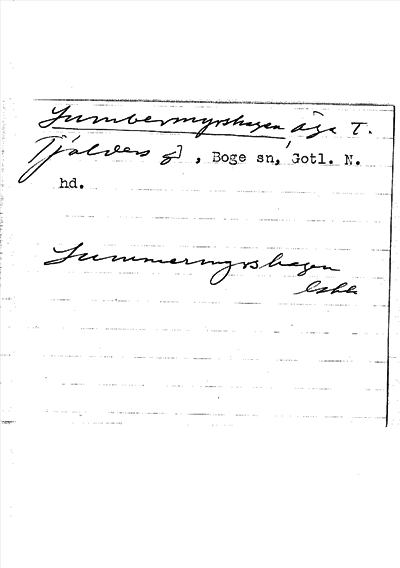 Lumbermyrshagen äga T.
Tjälders g] , Boge sn, Gotl. N.
hd.
Lummermyrshagen